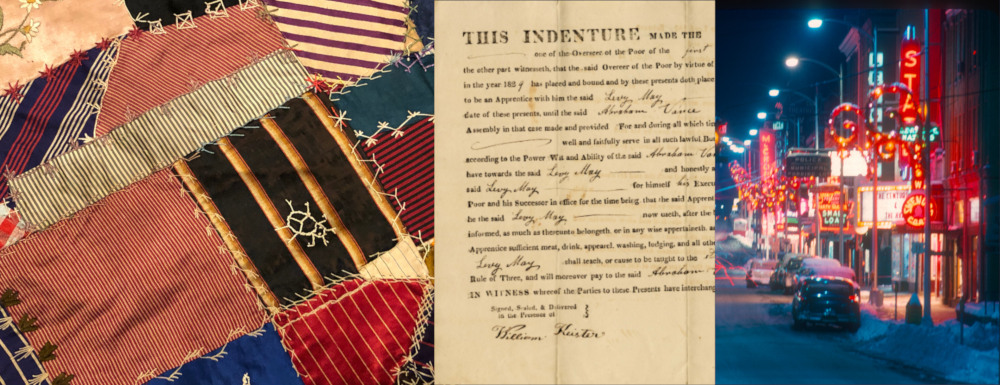 THIS INDENTURE MADE THE
one of the Overseer of the Poor of the first
the other part witnesseth, that the said Overeer of the Poor by virtue of
in the year 182 has placed and bound and by these presents doth place
to be an Apprentice with him the said Levy May
date of these presents, until the said Abraham Vance
Assembly in that case made and provided For and doring all which
well and faithfully serve in all such lawful
according to the Power Wit and Ability of the said Abraham
have towards the said Levy May and honestly
said Levy May for himself his
Poor and his Successor in office for the time being, that the said
be the said Levy May now useth, after the
informed, as much as thereunto belongeth, or in any wise appertaineth,
Apprentice sufficient meat, drink, apparel, washing, lodging, and all
Levy May shall teach, or cause to be taught to the
Rule of Three, and will moreover pay to the said Abraham
IN WITNESS whereof the Parties to these Presents have
Signed, Sealed, & Delivered
in the Presence of
William
STA
LOAN